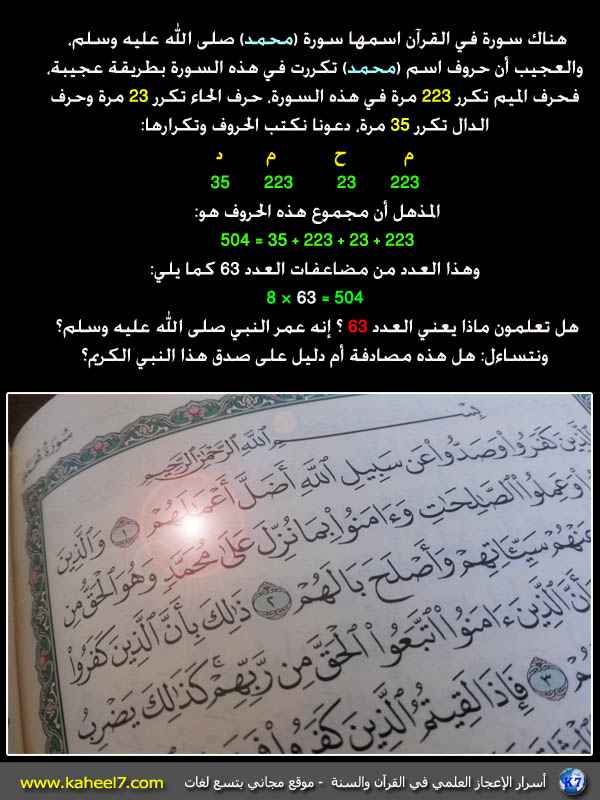 هناك سورة في القرآن اسمها سورة (محمد) صلى الله عليه وسلم،
والعجيب أن حروف اسم (محمد) تكررت في هذه السورة بطريقة عجيبة،
فحرف الميم تكرر 223 مرة في هذه السورة، حرف الحاء تكرر 23 مرة وحرف
الدال تكرر 35 مرة، دعونا نكتب الحروف وتكرارها:
م ح م د
223 23 223 35
المذهل أن مجموع هذه الحروف هو:
223 + 23 + 223 + 35 = 504
وهذا العدد من مضاعفات العدد 63 كما يلي:
504 = 63 × 8
هل تعلمون ماذا يعني العدد 63 ؟ إنه عمر النبي صلى الله عليه وسلم؟
ونتساءل: هل هذه مصادفة أم دليل على صدق هذا النبي الكريم؟
بِسْمِ ٱللَّهِ ٱلرَّحْمَٰنِ ٱلرَّحِيمِ
ٱلَّذِينَ كَفَرُوا۟ وَصَدُّوا۟ عَن سَبِيلِ ٱللَّهِ أَضَلَّ أَعْمَٰلَهُمْ ١ وَٱلَّذِينَ
وَعَمِلُوا۟ ٱلصَّٰلِحَٰتِ وَءَامَنُوا۟ بِمَا نُزِّلَ عَلَىٰ مُحَمَّدٍ وَهُوَ ٱلْحَقُّ مِن
عَنْهُمْ سَيِّـَٔاتِهِمْ وَأَصْلَحَ بَالَهُمْ ٢ ذَٰلِكَ بِأَنَّ ٱلَّذِينَ كَفَرُوا۟
وَأَنَّ ٱلَّذِينَ ءَامَنُوا۟ ٱتَّبَعُوا۟ ٱلْحَقَّ مِن رَّبِّهِمْ ۚ كَذَٰلِكَ يَضْرِبُ
٣ فَإِذَا لَقِيتُمُ ٱلَّذِينَ كَفَرُوا۟
أسرار الإعجاز العلمي في القرآن والسنة - موقع مجاني بتسع لغات www.kaheel7.com
K7